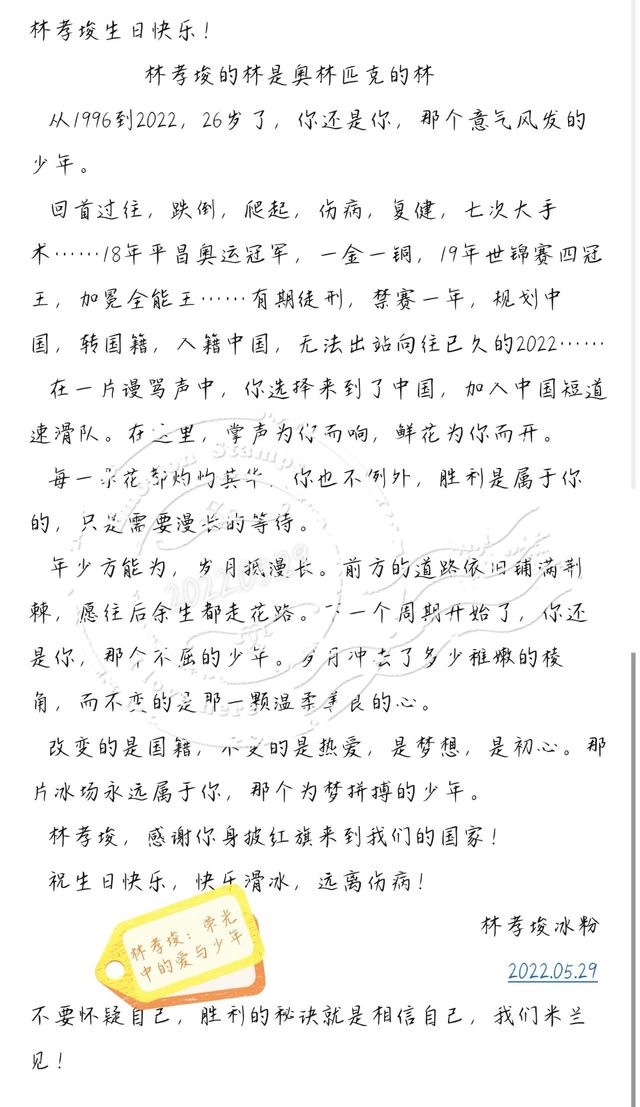 林孝埈生日快乐！
林孝埈的林是奥林匹克的林
从1996到2022，26岁了，你还是你，那个意气风发的
少年。
回首过往，跌倒，爬起，伤病，复健，七次大手
术……18年平昌奥运冠军，一金一铜，19年世锦赛四冠
王，加冕全能王……有期徒刑，禁赛一年，规划中
国，转国籍，入籍中国，无法出站向往已久的2022……
在一片谩骂声中，你选择来到了中国，加入中国短道
速滑队。在这里，掌声为你而响，鲜花为你而开。
每一朵花都灼灼其华，你也不例外，胜利是属于你
的，只是需要漫长的等待。
年少方能为，岁月抵漫长。前方的道路依旧铺满荆
棘，愿往后余生都走花路。下一个周期开始了，你还
是你，那个不屈的少年。岁月冲去了多少稚嫩的棱
角，而不变的是那一颗温柔善良的心。
改变的是国籍，不变的是热爱，是梦想，是初心。那
片冰场永远属于你，那个为梦拼搏的少年。
林孝埈，感谢你身披红旗来到我们的国家！
祝生日快乐，快乐滑冰，远离伤病！
林孝埈冰粉
2022.05.29
林孝埈：荣光
中的爱与少年
不要怀疑自己，胜利的秘诀就是相信自己，我们米兰
见！